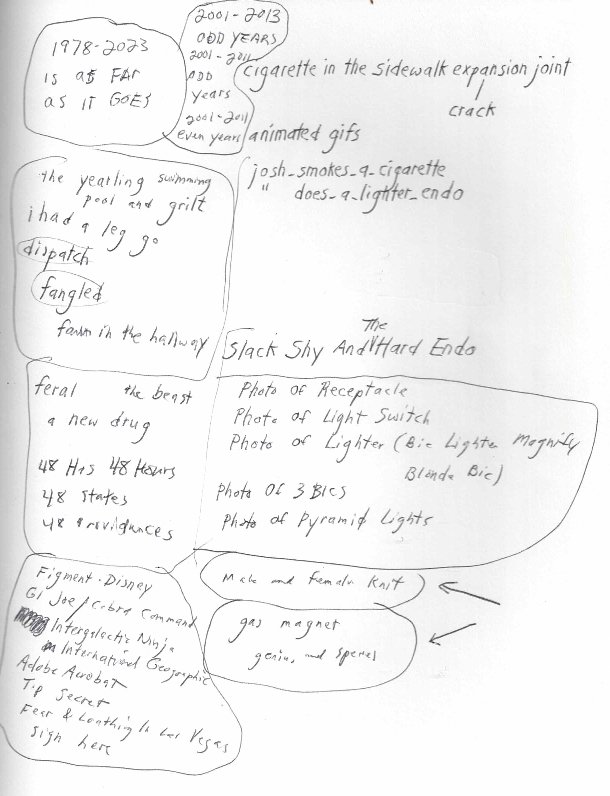 1978-2023
is as FAR
as IT GOES
2001-2013
ODD YEARS
2001-2011
ODD
Years
2001-2011
even years
cigarette in the sidewalk expansion joint
crack
animated gifs
josh_smokes_a_cigarette
" does_a_lighter_endo
the yearling swimming
pool and grilt
i had a leg go
dispatch
fangled
farm in the hallway
Slack Shy And The Hard Endo
feral the beast
a new drug
48 Hrs 48 Hours
48 States
48
Photo of Receptacle
Photo of Light Switch
Photo of Lighter (Bic Lighter Magnify
Blonde Bic)
Photo Of 3 BICS
Photo of Pyramid Lights
Male and female Knit
gas magnet
genius, and special
Figment. Disney
GI Joe / Cobra Command
Intergalactic Ninja
International Geographic
Adobe Acrobat
Top Secret
Fear & Loathing In Las Vegas
sign here